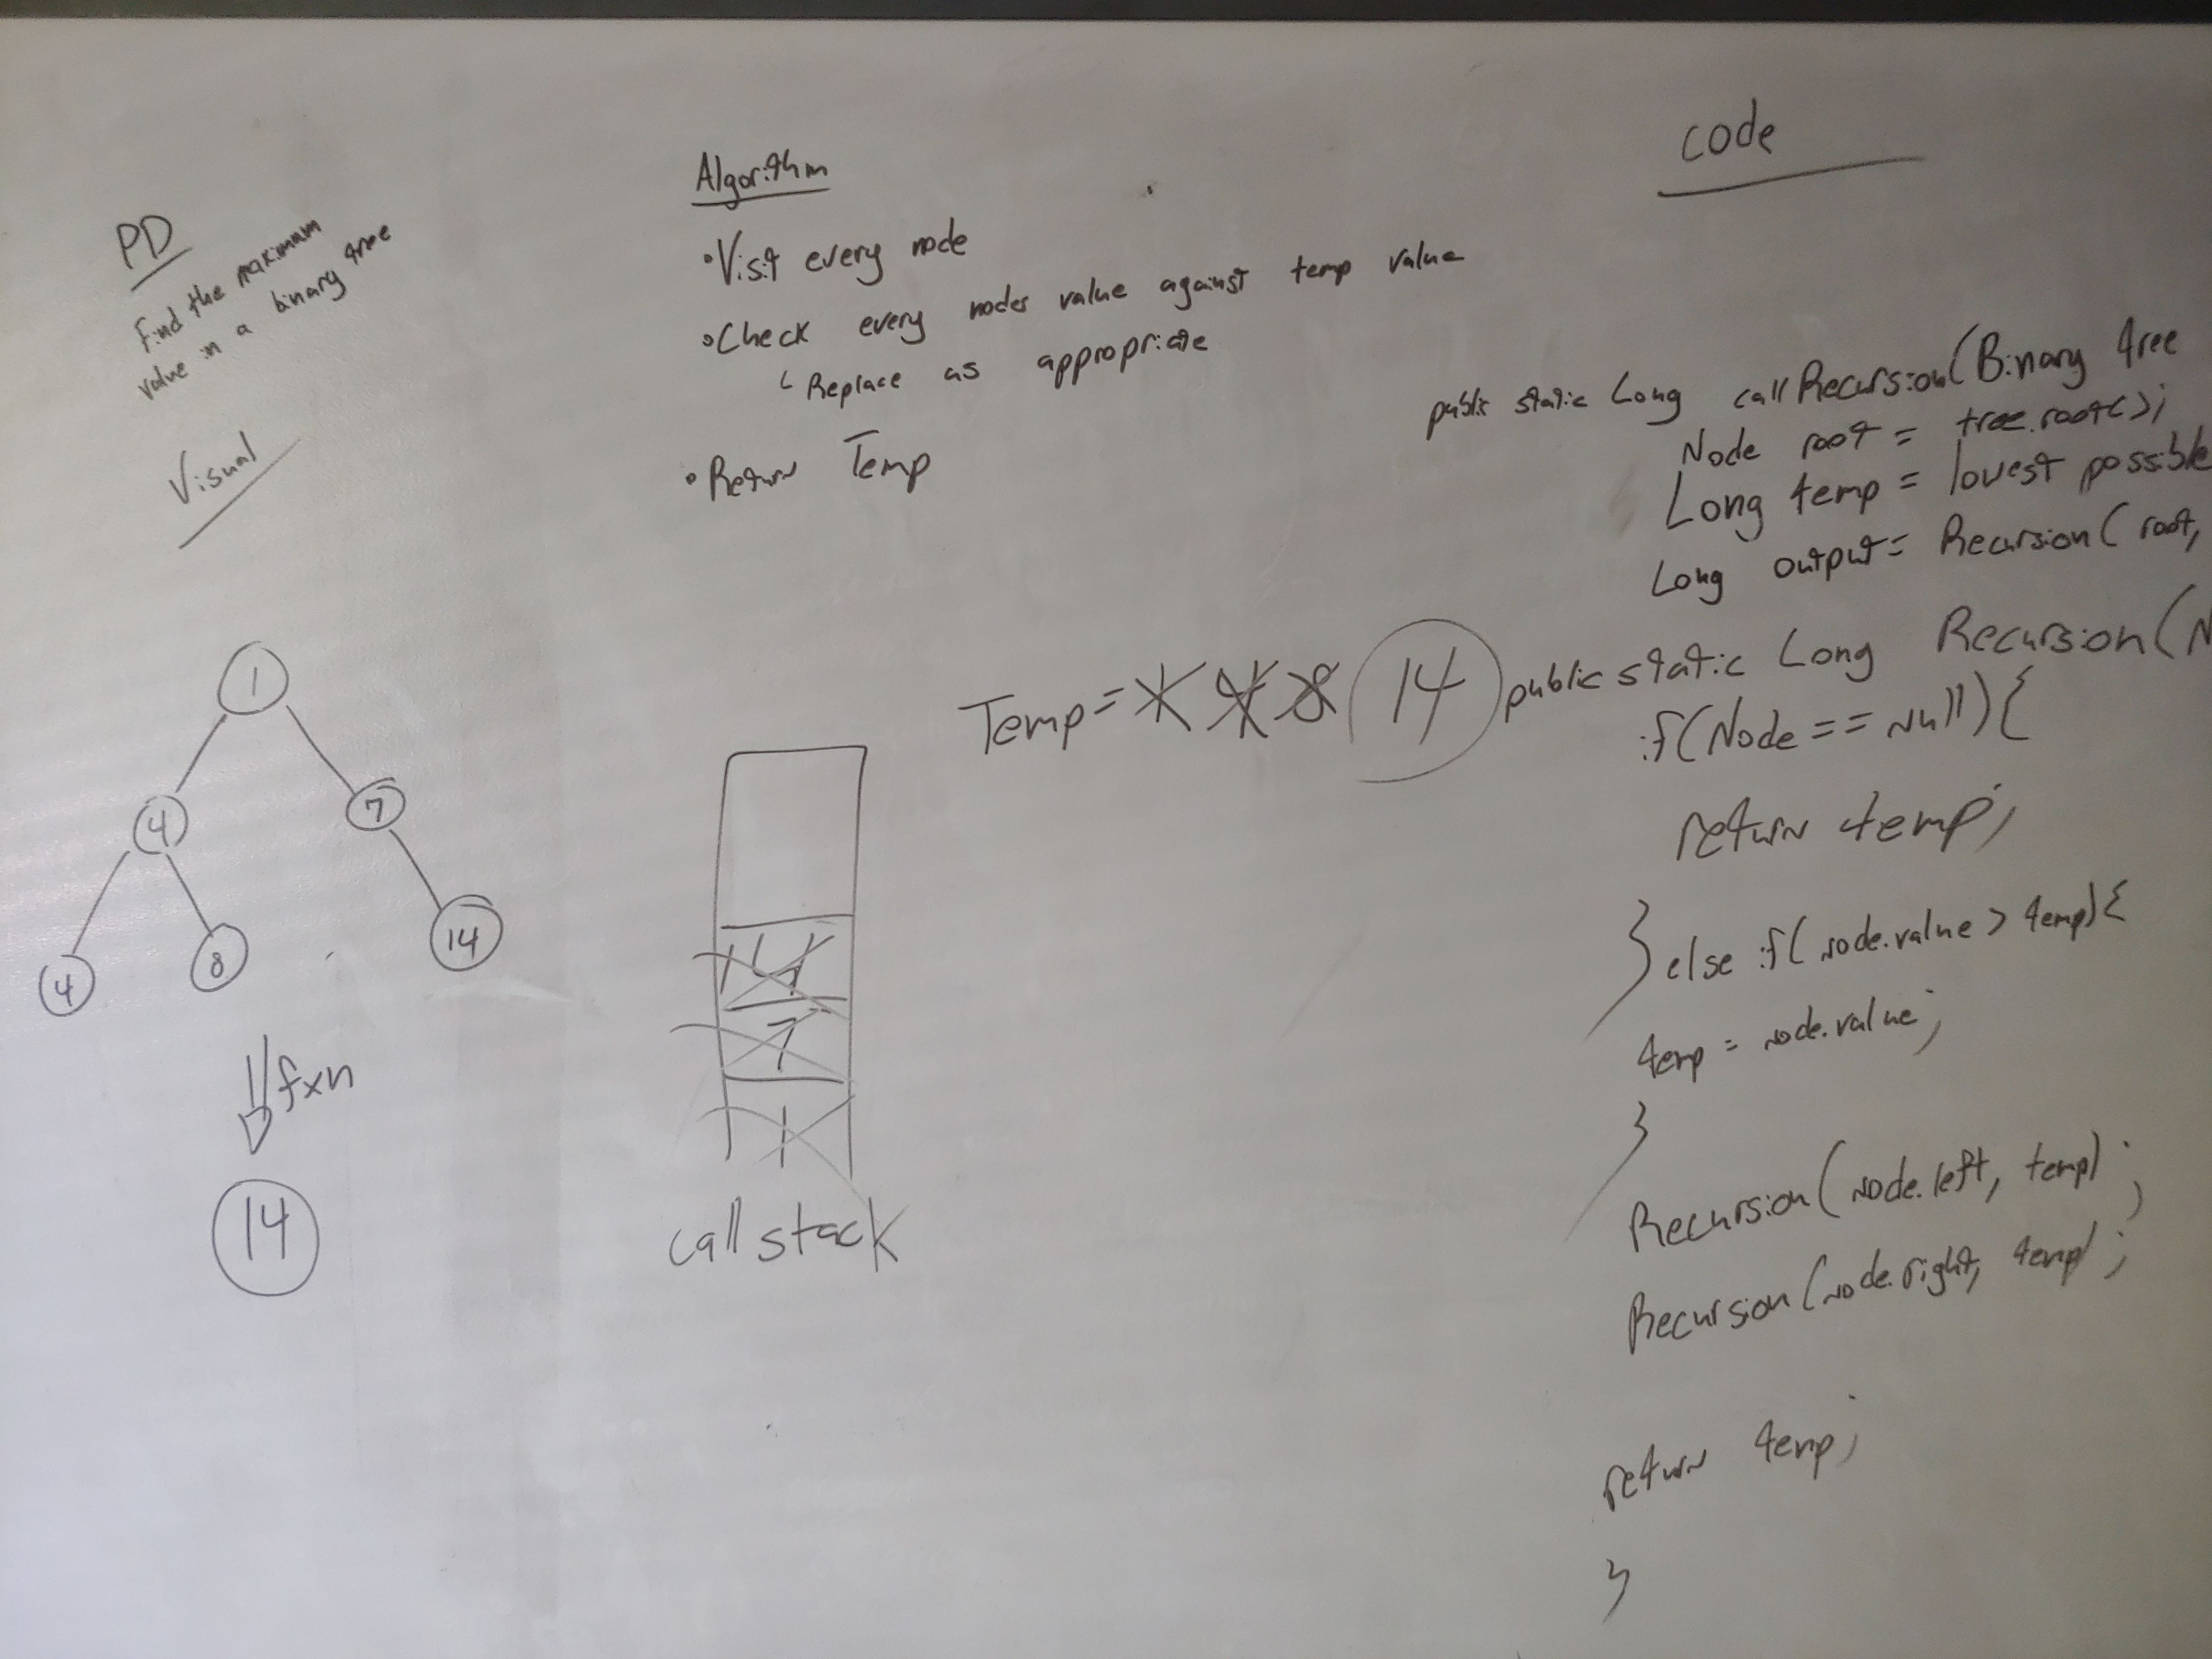 PD
Find the maximum
value in a binary tree
Visual
1
4
7
4
8
14
fxn
14
Algorithm
• Visit every node
• Check every nodes value against temp value
Replace as appropriate
• Return Temp
Temp = 1 4 8 14
14
7
1
call stack
code
public static Long callRecursion(Binary tree
Node root = tree.root();
Long temp = lowest possible
Long output = Recursion(root,
public static Long Recursion(N
if(Node == null){
return temp;
}else if(node.value > temp){
temp = node.value;
}
Recursion(node.left, temp);
Recursion(node.right, temp);
return temp;
}